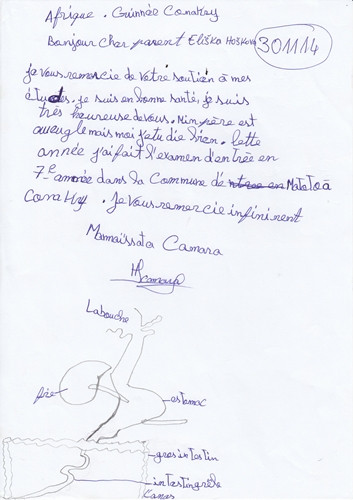 Afrique. Guinnée Conakay
Bonjour cher parent Eliška Hošková
301114
je vous remercie de votre soutien à mes
études. je suis en bonne santé, je suis
très heureuse de vous. Min père est
aveugle mais moi j'etudie bien. Cette
année j'ai fait l'examen d'entrée en
7e année dans la Commune de Matoto à
Conakry. Je vous remercie infiniment
Mamaïssata Camara
Labouche
foie
estomac
gros intestin
intestin grêle